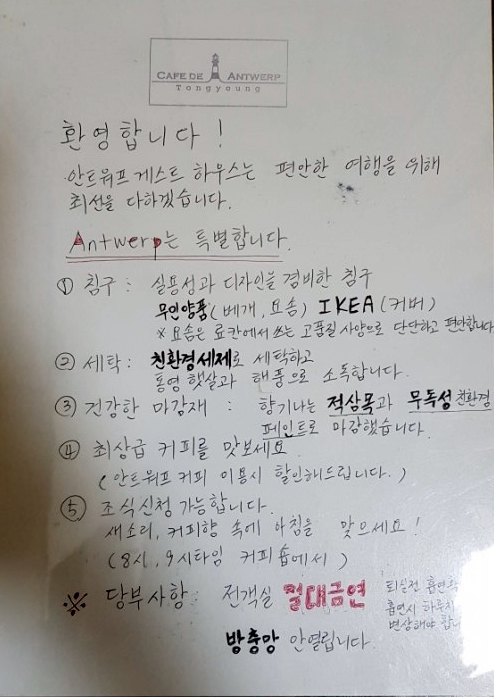 CAFE DE ANTWERP
Tongyoung
환영합니다!
안트워프 게스트 하우스는 편안한 여행을 위해
최선을 다하겠습니다.
Antwerp는 특별합니다.
① 침구 : 실용성과 디자인을 겸비한 침구
무인양품 (베개, 요솜) IKEA (커버)
※ 요솜은 료칸에서 쓰는 고품질 사양으로 단단하고 편안합니다
② 세탁 : 친환경세제로 세탁하고
통영 햇살과 해풍으로 소독합니다.
③ 건강한 마감재 : 향기나는 적삼목과 무독성 친환경
페인트로 마감했습니다.
④ 최상급 커피를 맛보세요
(안트워프 커피 이용시 할인해드립니다.)
⑤ 조식신청 가능합니다.
새소리, 커피향 속에 아침을 맞으세요!
(8시, 9시타임 커피숍에서)
※ 당부사항 : 전객실 절대금연
퇴실전
흡연시
변상해야
방충망 안열립니다.